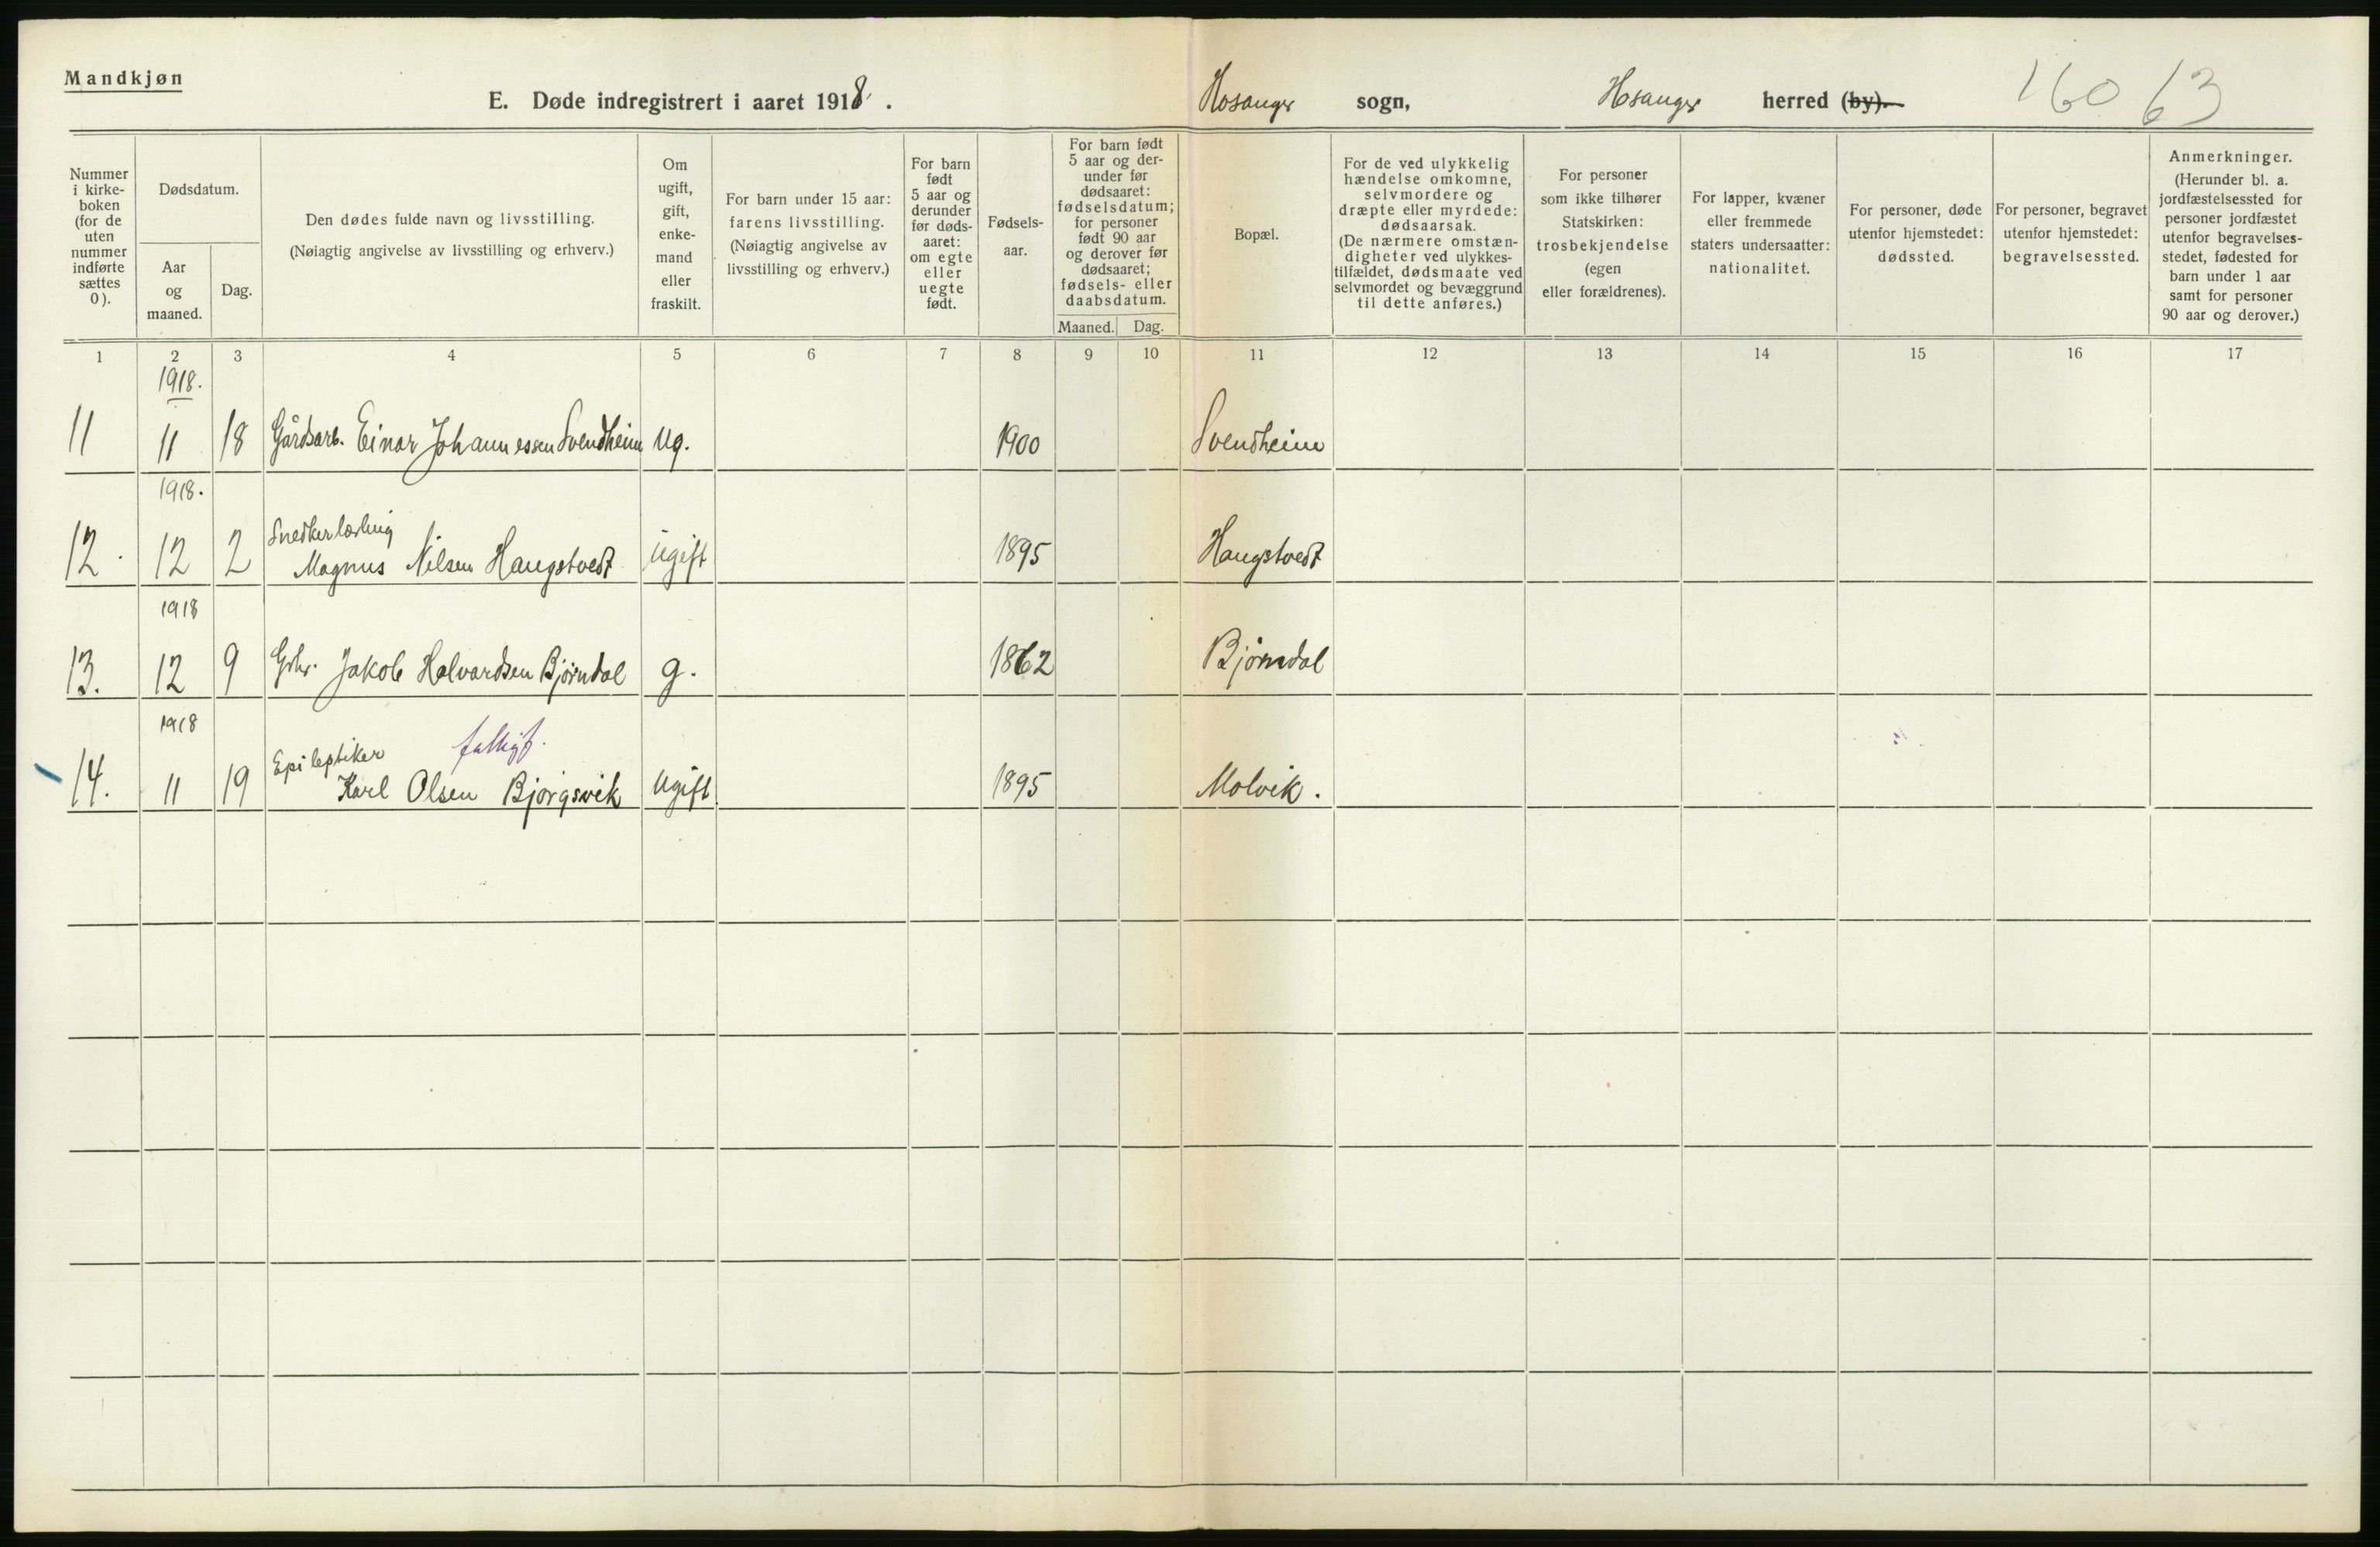 Mandkjøn
E. Døde indregistrert i aaret 1918.
Hosanger sogn, Hosanger herred (by).
160 63
Nummer i kirke- boken (for de uten nummer indførte sættes 0).
Dødsdatum.
Aar og maaned.
Dag.
Den dødes fulde navn og livsstilling.
(Nøiagtig angivelse av livsstilling og erhverv.)
Om ugift, gift, enke- mand eller fraskilt.
For barn under 15 aar: farens livsstilling. (Nøiagtig angivelse av livsstilling og erhverv.)
For barn født 5 aar og derunder før døds- aaret: om egte eller uegte født.
Fødsels- aar.
For barn født 5 aar og der- under før dødsaaret: fødselsdatum; for personer født 90 aar og derover før dødsaaret; fødsels- eller daabsdatum.
Maaned. Dag.
Bopæl.
For de ved ulykkelig hændelse omkomne, selvmordere og dræpte eller myrdede: dødsaarsak. (De nærmere omstæn- digheter ved ulykkes- tilfældet, dødsmaate ved selvmordet og bevæggrund til dette anføres.)
For personer som ikke tilhører Statskirken: trosbekjendelse (egen eller forældrenes).
For lapper, kvæner eller fremmede staters undersaatter: nationalitet.
For personer, døde utenfor hjemstedet: dødssted.
For personer, begravet utenfor hjemstedet: begravelsessted.
Anmerkninger. (Herunder bl. a. jordfæstelsessted for personer jordfæstet utenfor begravelses- stedet, fødested for barn under 1 aar samt for personer 90 aar og derover.)
1 2 3 4 5 6 7 8 9 10 11 12 13 14 15 16 17
1918.
11 11 18 Gårdsarb. Einar Johannessen Svendheim ug. 1900 Svendheim
1918.
Snedkerlærling
12. 12 2 Magnus Nilsen Haugstvedt ugift 1895 Haugstvedt
1918
13. 12 9 Gbr. Jakob Halvardsen Bjørndal g. 1862 Bjørndal
1918
Epileptiker
14. 11 19 Karl Olsen Bjørgsvik ugift 1895 Molvik.